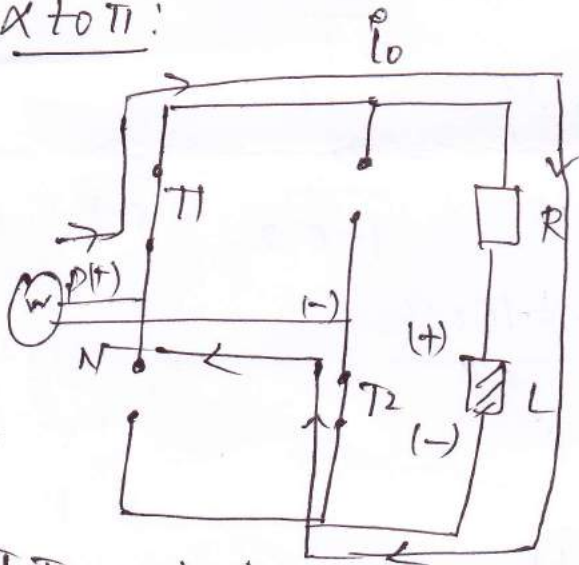 α to π :
i0
T1
R
P(+)
(-)
N
(+)
T2
L
(-)